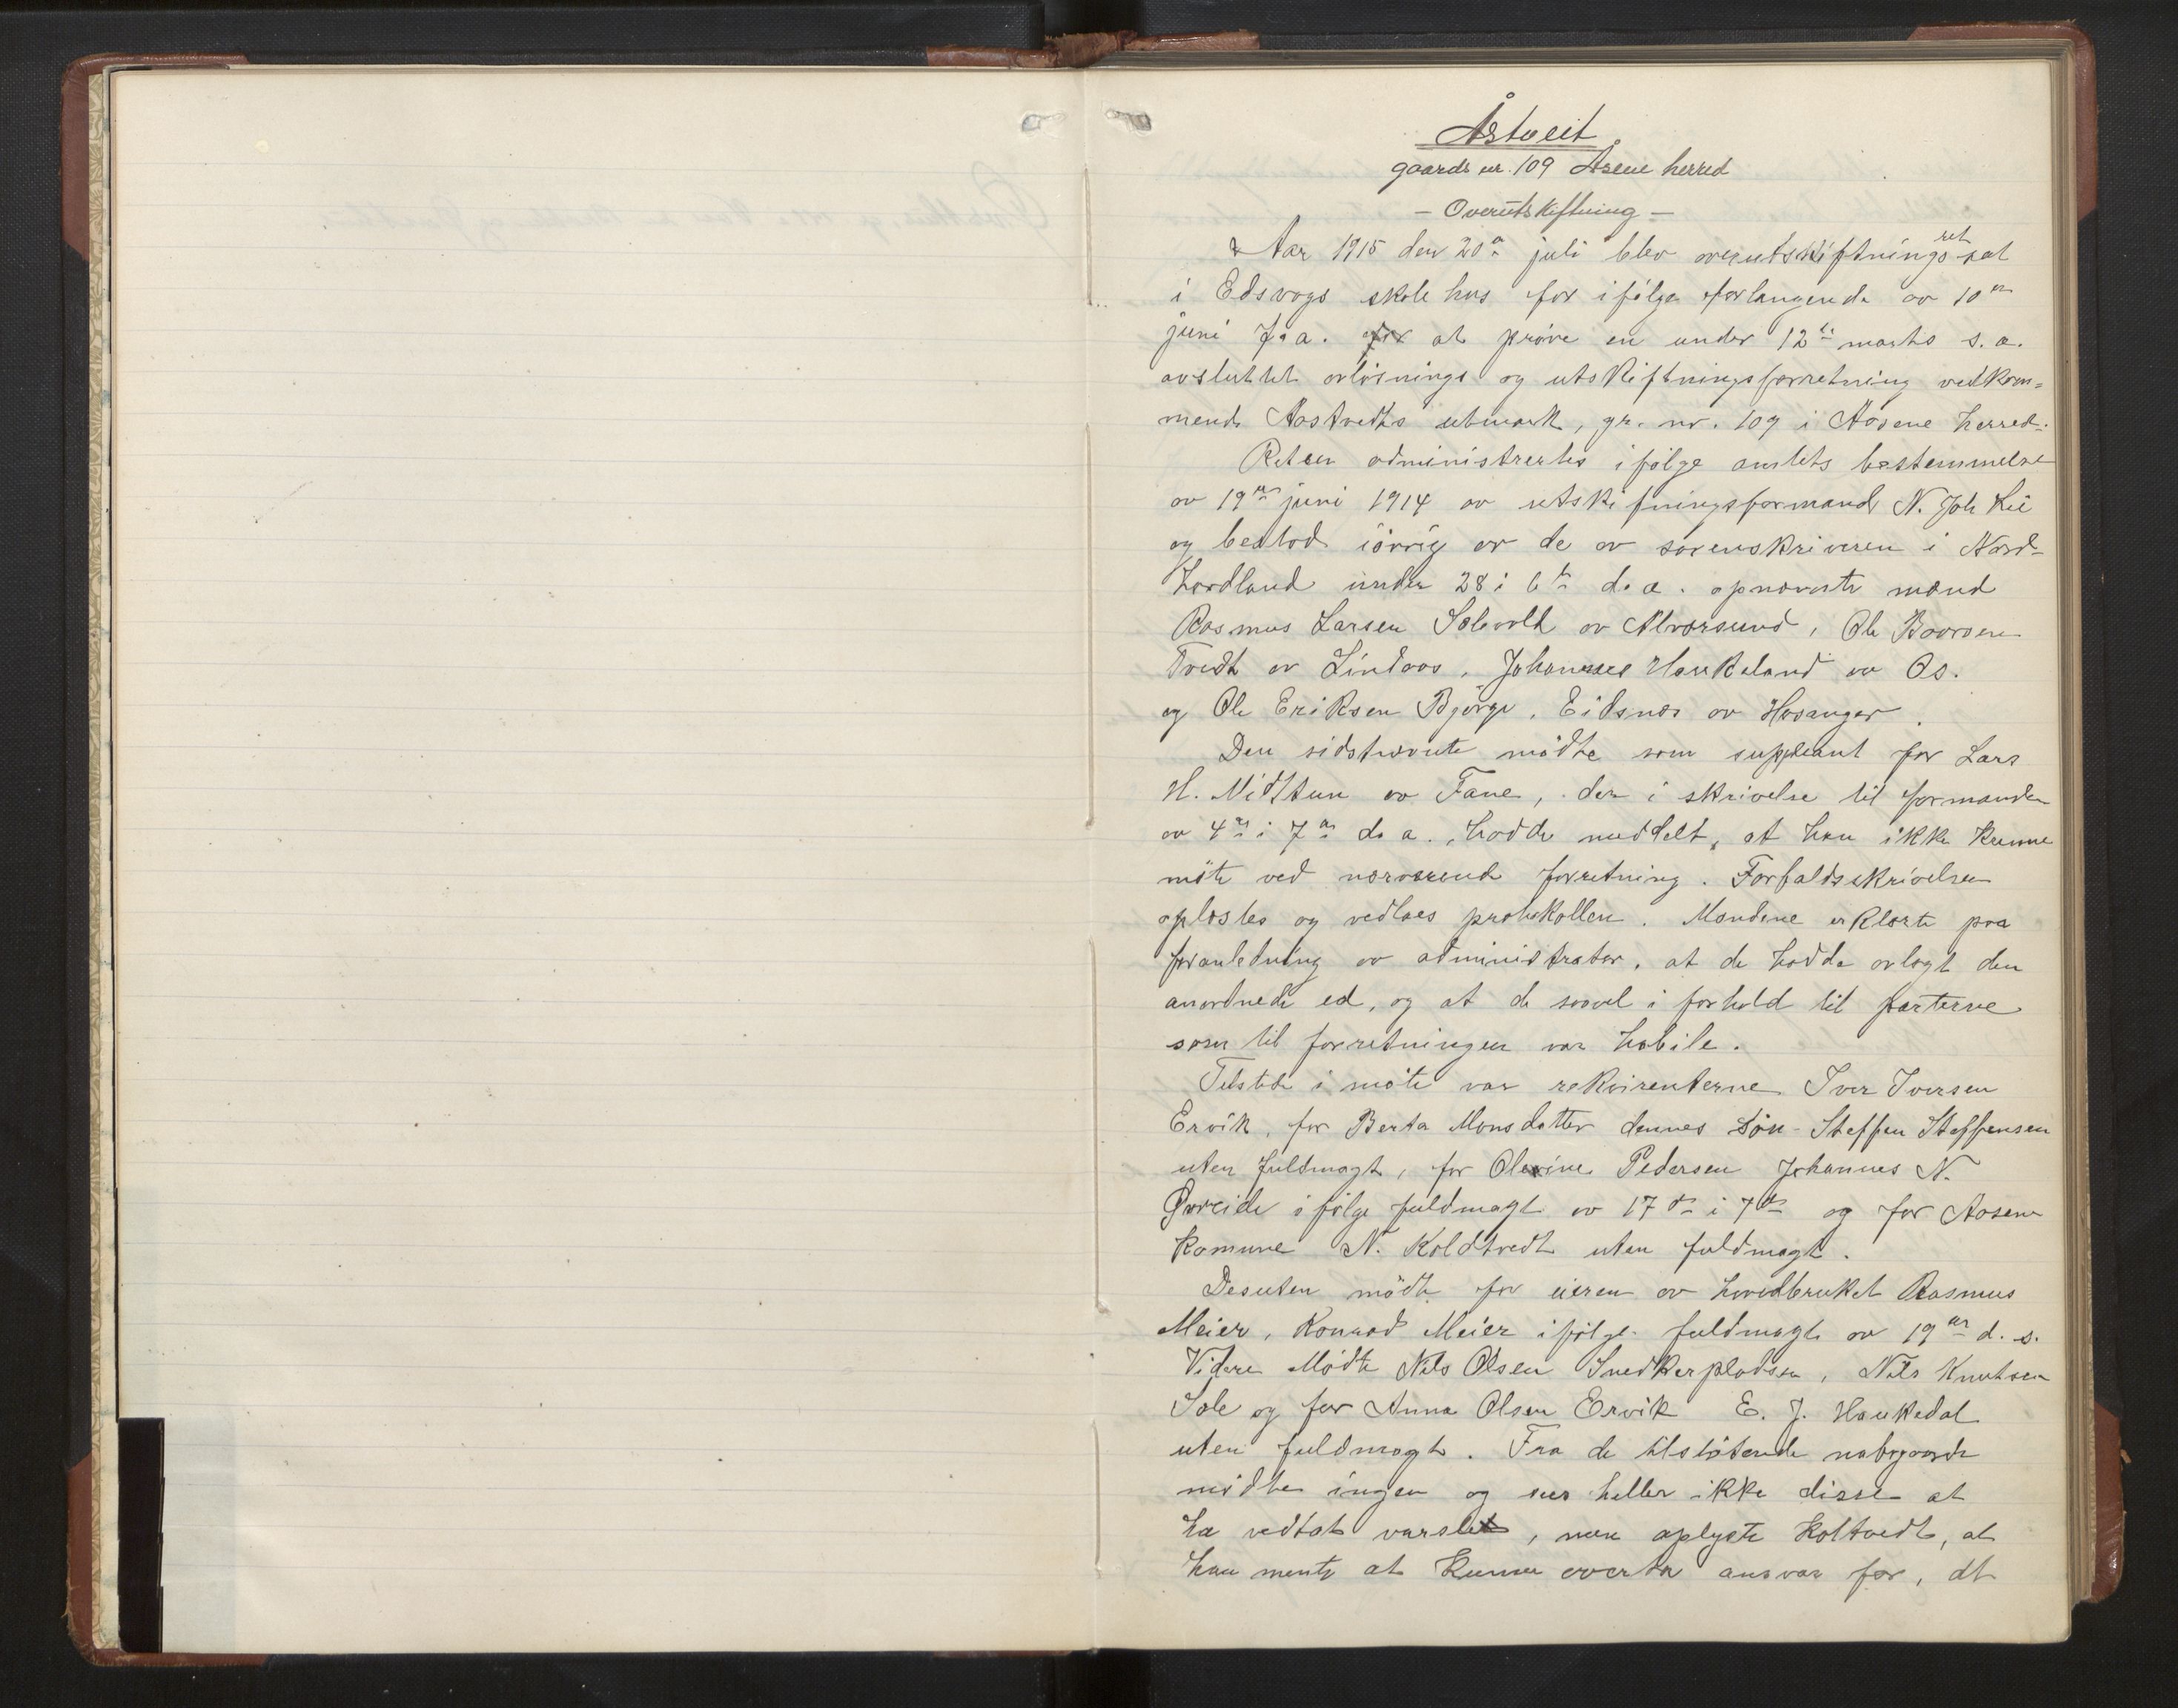 Åstveit
gaards nr. 109 Åsene herred
- Overutskiftning -
Aar 1915 den 20de juli blev overutskiftningsret sat
i Edsvogs skolehus for ifølge forlangende av 10de
juni f.a. for at prøve en under 12te marts s.a.
avsluttet avløsnings og utskiftningsforretning vedkom=
mende Aastvedts utmark, gr. nr. 109 i Aasene herred.
Retten administrertes ifølge amtets bestemmelse
av 19de juni 1914 av utskiftningsformand N. Joh Lii
og bestod iøvrig av de av sorenskriveren i Nord-
hordland under 28 i 6te d.a. opnævnte mænd
Rasmus Larsen Solevold av Alversund, Ole Baarsen
Tvedt av Lindaas, Johannes Haukeland av Os.
og Ole Eriksen Bjørge, Eidsnes av Hosanger.
Den sidstnævnte mødte som supleant for Lars
H. Midttun av Fane, der i skrivelse til formanden
av 4de i 7de d.a. hadde meddelt, at han ikke kunne
møte ved nærværende forretning. Forfaldsskrivelsen
oplæstes og vedlaes protokollen. Mændene erklærte paa
foranledning av administrator, at de hadde avlagt den
anordnede ed, og at de saavel i forhold til parterne
som til forretningen var habile.
Tilstede i møte var rekvirenterne Iver Iversen
Ervik, for Berta Monsdatter dennes søn Steffen Steffensen
uten fuldmagt, for Olevine Pedersen Johannes N.
Øvreide ifølge fuldmagt av 17de i 7de og for Aasene
komune N. Koldtvedt uten fuldmagt.
Desuten mødte for eieren av hovedbruket Rasmus
Meier, Konrad Meier ifølge fuldmagt av 19de d.s.
Videre Mødte Nils Olsen Snedkerpladsen, Nils Knutsen
Sole og for Anna Olsen Ervik E. J. Haukedal
uten fuldmagt. Fra de tilstøtende nabogaarde
mødte ingen og sees heller ikke disse at
ha vedtat varslet, men oplyste Koltvedt, at
han mente at kunne overta ansvar for, at